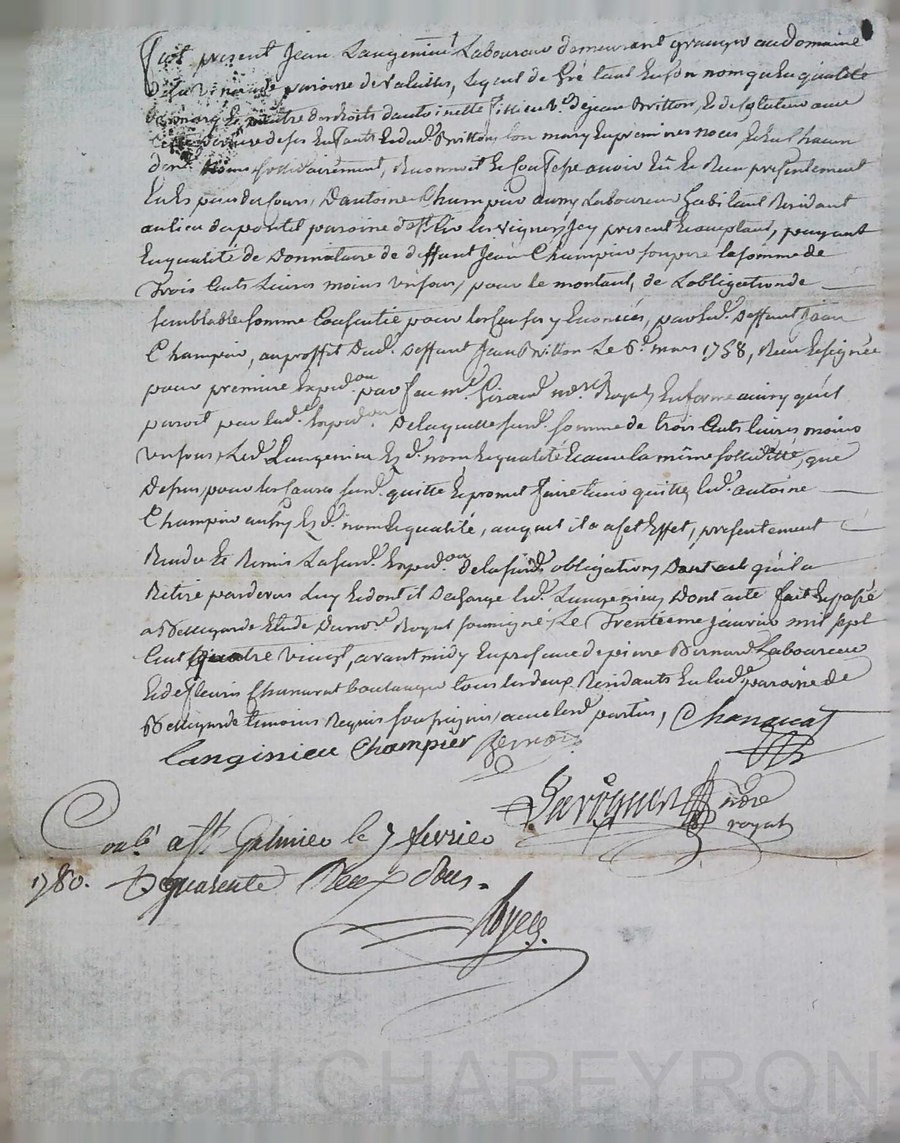 fut present Jean Langenieu Laboureur demeurant granger au domaine
de la paroisse de valeilles, lequel de gré tant en son nom qu'en qualité
de mary et maitre des droits d'antoinette ve de jean Britton, et
de ses Enfants et dud. Britton son mary en premieres noces et l'un
d'eux solidairement, Reconnoit et Confesse avoir Eû et Reçu presentement
Et dès peu de jours, D'antoine Champier Laboureur habitant Residant
au lieu du pontil paroisse de st Cir les vignes, icy present Acceptant, payant
En qualité de Donnataire de deffunt Jean Champier son pere la somme de
Trois Cents Livres moins un sou, pour le montant, de L'obligation de
semblable somme Consentie pour les causes y Enoncées, par led. deffunt Jean
Champier, au proffit dud. deffunt Jean Britton Le 6e. mars 1758, Reçu et signée
pour premiere Expedon par feu me. Giraud nore Royal, En forme ainsy qu'il
paroit par lad. Expedon. De laquelle susd. somme de trois Cents livres moins
un sou, Led. Langenieu Esd. nom et qualité Et avec la même sollidité, que
dessus, pour les causes susd. quitte et promet faire tenir quitte led. antoine
Champier Esd. nom et qualité, auquel il a a cet Effet, presentement
Rendu et Remis La susd. Expedon de la susd. obligation, Dont acte qu'il a
Retiré pardevers Luy et dont il Decharge led. Langenieu, Dont acte fait et passé
a Bellegarde Etude du nore. Royal soussigné Le Trentieme janvier mil sept
Cent quatre vingt, avant midy En presence de pierre Bernard Laboureur
Et de fleurie Chanavat boulanger tous les deux Residants En lad. paroisse de
Bellegarde temoins Requis soussignés, avec lesd. parties, Chanavat
Langinieu Champier Bernard
nore
royal
Conlé a st Galmier le 7 fevrier
1780. R quarente Deux sous.